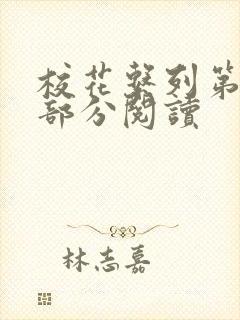 校花繫列第
部分閱讀
林志嘉